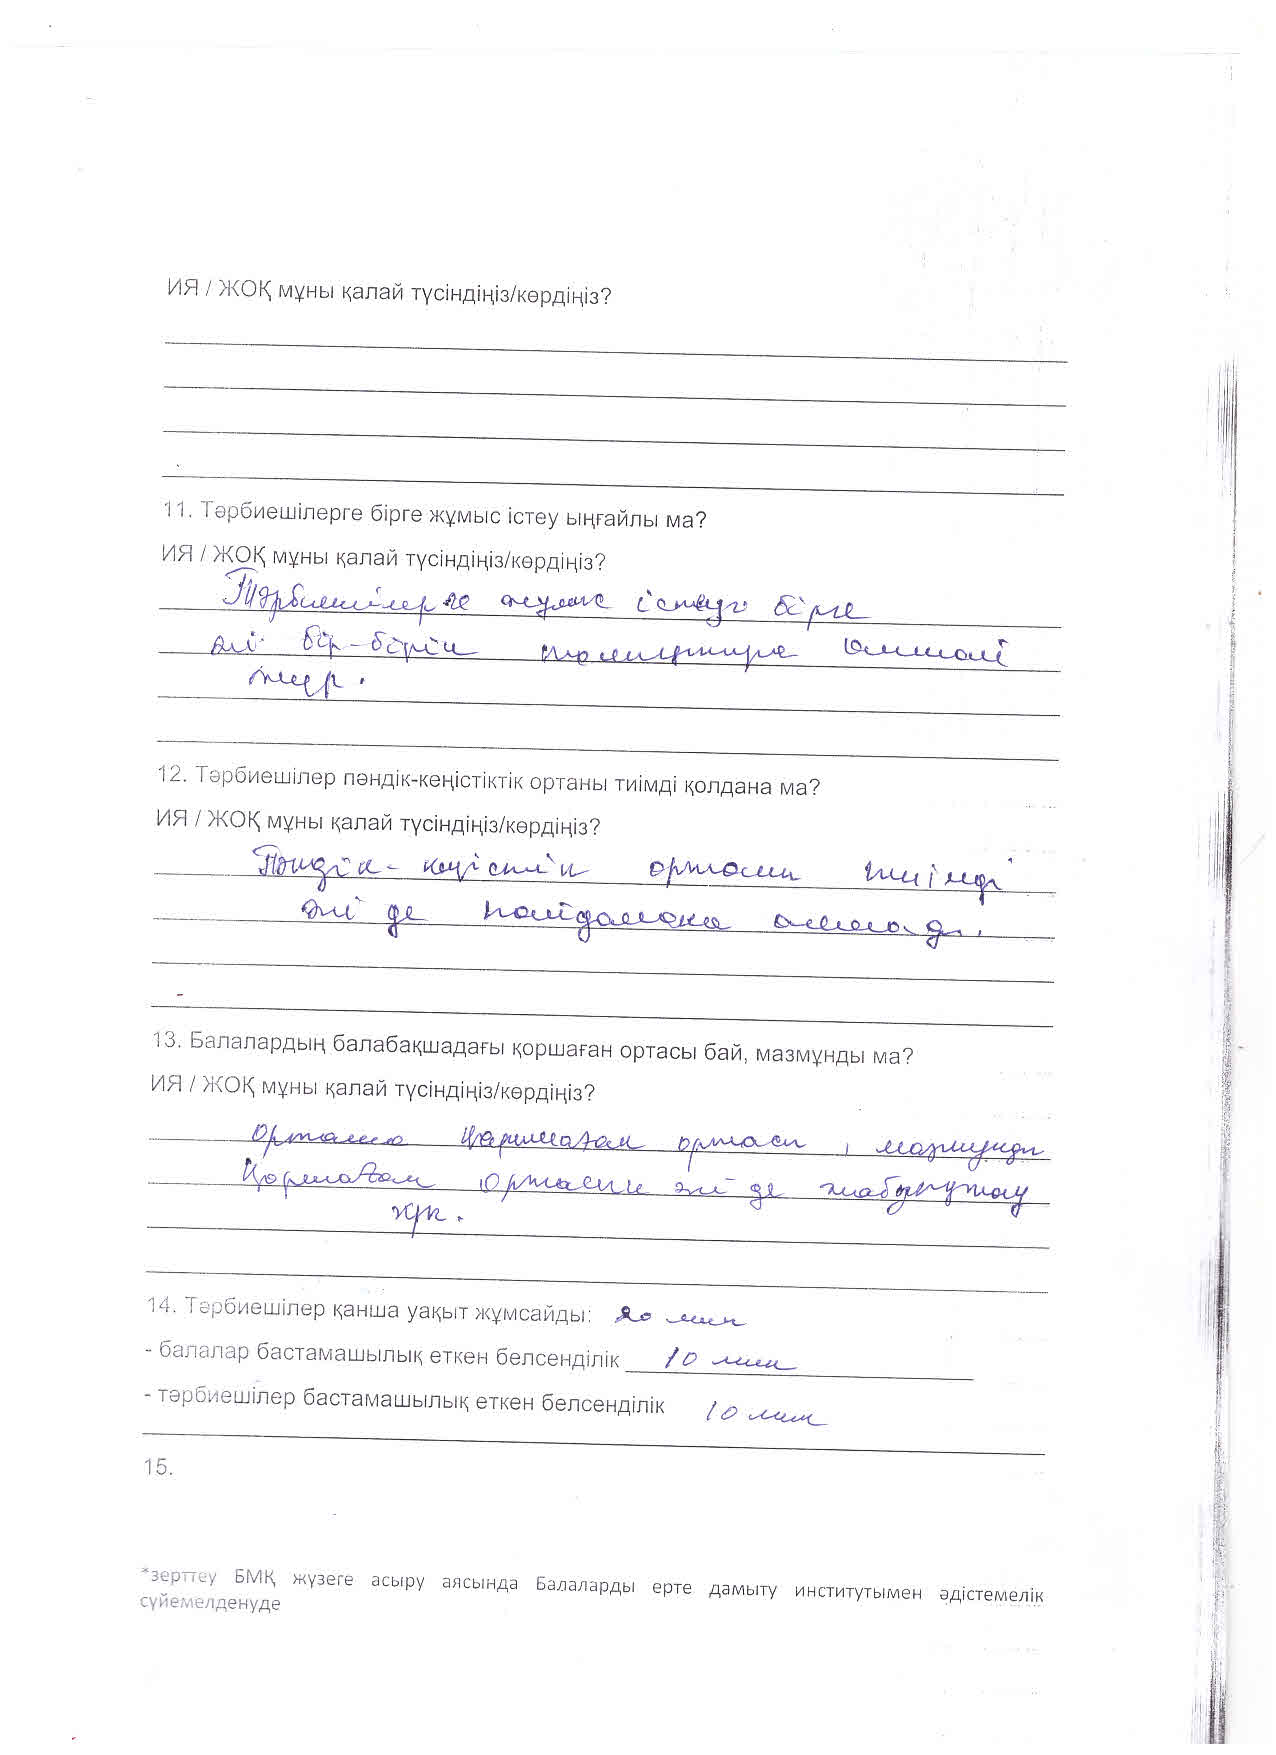 ИЯ / ЖОҚ мұны қалай түсіндіңіз/көрдіңіз?
11. Тәрбиешілерге бірге жұмыс істеу ыңғайлы ма?
ИЯ / ЖОҚ мұны қалай түсіндіңіз/көрдіңіз?
Тәрбиешілерге жұмыс істеуге бірге
әлі бір-бірін толықтыра алмай
жүр.
12. Тәрбиешілер пәндік-кеңістіктік ортаны тиімді қолдана ма?
ИЯ / ЖОҚ мұны қалай түсіндіңіз/көрдіңіз?
Пәндік-кеңістік ортаны тиімді
әлі де пайдалана алмады.
13. Балалардың балабақшадағы қоршаған ортасы бай, мазмұнды ма?
ИЯ / ЖОҚ мұны қалай түсіндіңіз/көрдіңіз?
Орташа қоршаған ортасы, мазмұнды
Қоршаған ортасын әлі де жабдықтау
14. Тәрбиешілер қанша уақыт жұмсайды: 20 мин
- балалар бастамашылық еткен белсенділік 10 мин
- тәрбиешілер бастамашылық еткен белсенділік 10 мин
15.
*зерттеу БМҚ жүзеге асыру аясында Балаларды ерте дамыту институтымен әдістемелік
сүйемелденуде